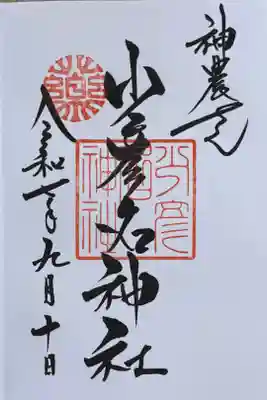 神農さん
少彦名神社
令和年九月十日
少彦名神社